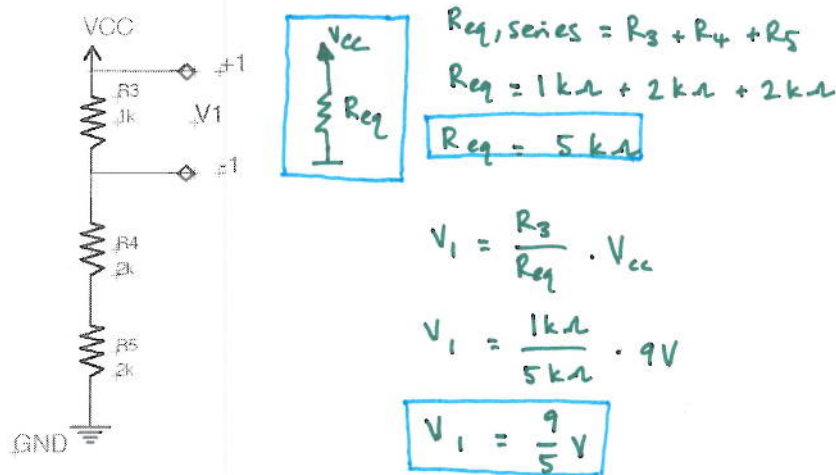 VCC
+1
R3
1k
V1
-1
R4
2k
R5
2k
GND
Vcc
Req
Req, series = R3 + R4 + R5
Req = 1kΩ + 2kΩ + 2kΩ
Req = 5kΩ
V1 = R3/Req · Vcc
V1 = 1kΩ/5kΩ · 9V
V1 = 9/5 V